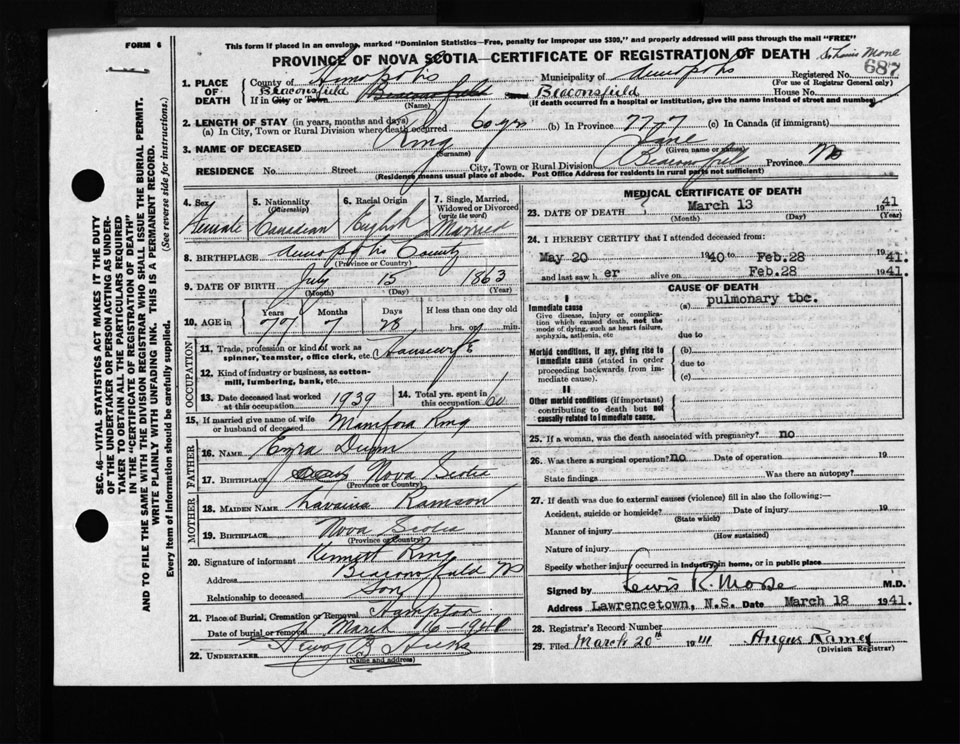 FORM 6
This form if placed in an envelope, marked "Dominion Statistics—Free, penalty for improper use $300," and properly addressed will pass through the mail "FREE"
PROVINCE OF NOVA SCOTIA—CERTIFICATE OF REGISTRATION OF DEATH
687
1. PLACE OF DEATH
County of Annapolis Municipality of Annapolis Registered No.
(For use of Registrar General only)
Beaconsfield
If in City or Town Beaconsfield Beaconsfield House No.
(Name) (If death occurred in a hospital or institution, give the name instead of street and number)
2. LENGTH OF STAY (in years, months and days)
(a) In City, Town or Rural Division where death occurred 60 yr (b) In Province 77 (c) In Canada (if immigrant)
3. NAME OF DECEASED King
(Surname) (Given name or names)
RESIDENCE No. Street City, Town or Rural Division Beaconsfield Province NS
(Residence means usual place of abode. Post Office Address for residents in rural parts not sufficient)
4. Sex Female
5. Nationality (Citizenship) Canadian
6. Racial Origin English
7. Single, Married, Widowed or Divorced (write the word) Married
8. BIRTHPLACE Annapolis County
(Province or Country)
9. DATE OF BIRTH July 15 1863
(Month) (Day) (Year)
10. AGE in Years Months Days If less than one day old
77 7 28 hrs. or min.
OCCUPATION
11. Trade, profession or kind of work as spinner, teamster, office clerk, etc. Housewife
12. Kind of industry or business, as cotton-mill, lumbering, bank, etc.
13. Date deceased last worked at this occupation 1939
14. Total yrs. spent in this occupation 60
15. If married give name of wife or husband of deceased King
FATHER
16. NAME Ezra Dunn
17. BIRTHPLACE Nova Scotia
(Province or Country)
MOTHER
18. MAIDEN NAME Ramson
19. BIRTHPLACE Nova Scotia
(Province or Country)
20. Signature of informant Kennett King
Address Beaconsfield NS
Relationship to deceased Son
21. Place of Burial, Cremation or Removal Hampton
Date of burial or removal March 16-1941
22. UNDERTAKER Hicks
(Name and address)
MEDICAL CERTIFICATE OF DEATH
23. DATE OF DEATH March 13 1941
(Month) (Day) (Year)
24. I HEREBY CERTIFY that I attended deceased from:
May 20 1940 to Feb.28 1941.
and last saw her alive on Feb.28 1941.
CAUSE OF DEATH
I
Immediate cause
Give disease, injury or complication which caused death, not the mode of dying, such as heart failure, asphyxia, asthenia, etc
(a) pulmonary tbc.
due to
Morbid conditions, if any, giving rise to immediate cause (stated in order proceeding backwards from immediate cause).
(b)
due to
(c)
II
Other morbid conditions (if important) contributing to death but not causally related to immediate cause.
25. If a woman, was the death associated with pregnancy? no
26. Was there a surgical operation? no Date of operation 19
State findings Was there an autopsy?
27. If death was due to external causes (violence) fill in also the following:—
Accident, suicide or homicide? Date of injury 19
(State which)
Manner of injury
(How sustained)
Nature of injury
Specify whether injury occurred in industry, in home, or in public place
Signed by Lewis R. Morse M.D.
Address Lawrencetown, N.S. Date March 18 1941.
28. Registrar's Record Number
29. Filed March 20th 1941 Angus Ramey
(Division Registrar)
SEC. 46—VITAL STATISTICS ACT MAKES IT THE DUTY
OF THE UNDERTAKER OR PERSON ACTING AS UNDER-
TAKER TO OBTAIN ALL THE PARTICULARS REQUIRED
IN THE "CERTIFICATE OF REGISTRATION OF DEATH"
AND TO FILE THE SAME WITH THE DIVISION REGISTRAR WHO SHALL ISSUE THE BURIAL PERMIT.
WRITE PLAINLY WITH UNFADING INK. THIS IS A PERMANENT RECORD.
Every item of Information should be carefully supplied. (See reverse side for instructions.)